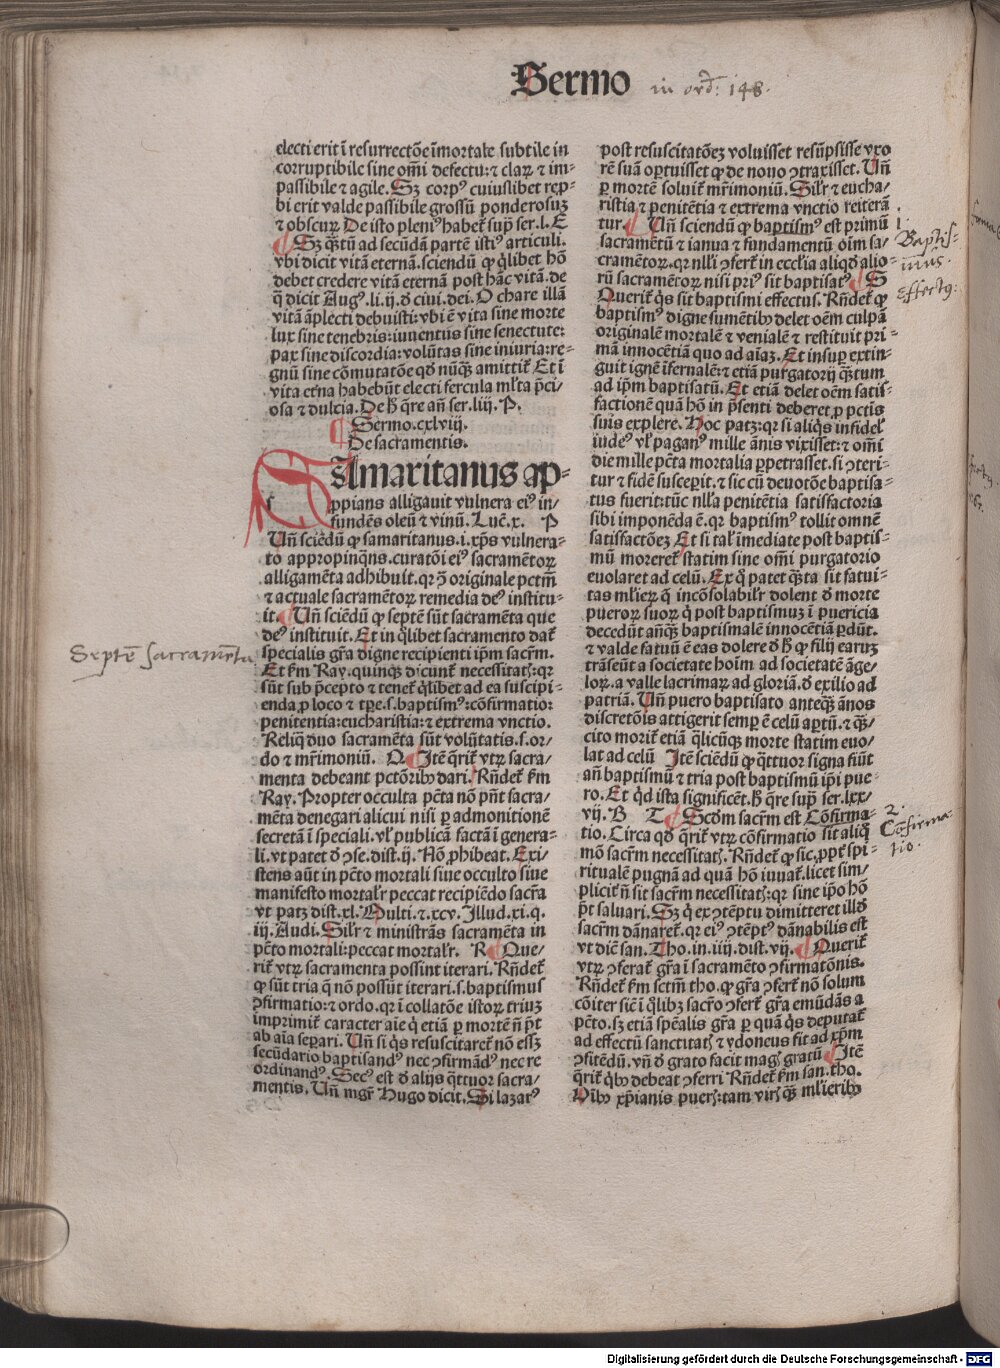 Sermo in ord: 148.
electi erit ī resurrectōe īmortale subtile in
corruptibile sine om̄i defectu: ⁊ claꝝ ⁊ im-
passibile ⁊ agile. Sꝫ corpꝰ cuiuslibet rep̱-
bi erit valde passibile grossū ponderosuꝫ
⁊ obscuꝝ De isto pleniꝰ habet͛ sup̄ ser. l. E
Sꝫ q̄tū ad secūdā partē istiꝰ articuli.
vbi dicit vitā eternā. sciendū ꝙ q̄libet hō
debet credere vitā eternā post hāc vitā. de
q̄ dicit Augꝰ. li. ij. đ ciui. dei. O chare illā
vitā āplecti debuisti: vbi ē vita sine morte
lux sine tenebris: iuuentus sine senectute:
pax sine discordia: volūtas sine iniuria: re-
gnū sine cōmutatōe qđ nūqꝫ amittit͛ Et ī
vita et͛na habebūt electi fercula ml̄ta p̄ci/
osa ⁊ dulcia. De h̄ q̄re an̄ ser. liij. P.
Sermo. cxlviij.
De sacramentis.
SAmaritanus ap-
ꝓpians alligauit vulnera eiꝰ in/
fundēs oleū ⁊ vinū. Luc̄. x. P
Un̄ sciēdū ꝙ samaritanus. i. xp̄s vulnera-
to appropinq̄ns. curatōi eiꝰ sacramētoꝝ
alligamēta adhibuit. qr ↄ̄ originale pctm̄
⁊ actuale sacramētoꝝ remedia deꝰ institu-
it. Un̄ sciēdū ꝙ septē sūt sacramēta que
deꝰ instituit. Et in q̄libet sacramento dat͛
specialis gr̄a digne recipienti ip̄m sacr̄m.
Et ẜm Ray. quinqꝫ dicunt͛ necessitatꝭ: qr
sūt sub p̄cepto ⁊ tenet͛ q̄libet ad ea suscipi-
enda, ꝓ loco ⁊ tp̄e. s. baptismꝰ: cōfirmatio:
penitentia: eucharistia: ⁊ extrema vnctio.
Reliq̄ duo sacramēta sūt volūtatis. s. or-
do ⁊ mr̄imoniū. Q Itē q̄rit͛ vtꝝ sacra/
menta debeant pctōribꝰ dari. Rn̄det͛ ẜm
Ray. Propter occulta pc̄ta nō pn̄t sacra/
mēta denegari alicui nisi ꝑ admonitionē
secretā ī speciali. vl̓ publicā factā ī genera-
li. vt patet đ ↄse. dist. ij. Nō ꝓhibeat. Exi/
stens aūt in pc̄to mortali siue occulto siue
manifesto mortalr̓ peccat recipiēdo sacr̄a
vt patꝫ dist. xl. Multi. ⁊. xcv. Illud. xi. q.
iij. Audi. Silr̓ ⁊ ministrās sacramēta in
pc̄to mortali: peccat mortalr̓. R Que/
rit͛ vtꝝ sacramenta possint iterari. Rn̄det͛
ꝙ sūt tria q̄ nō possūt iterari. s. baptismus
ↄfirmatio: ⁊ ordo. qr ī collatōe istoꝝ triuꝫ
imprimit͛ caracter aīe q̄ etiā ꝑ mortē n̄ p̄t
ab aīa seꝑari. Un̄ si q̄s resuscitaret͛ nō essꝫ
secūdario baptisandꝰ nec ↄfirmādꝰ nec re
ordinandꝰ. Secꝰ est đ alijs q̄ttuor sacra/
mentis. Un̄ mgr̄ Hugo dicit. Si lazarꝰ
post resuscitatōeꝫ voluisset resūpsisse vxo
rē suā oꝑtuisset ꝙ de nouo ↄtraxisset. Un̄
ꝑ mortē soluit͛ mr̄imoniū. Silr̓ ⁊ eucha/
ristia ⁊ penitētia ⁊ extrema vnctio reiterā
tur. Un̄ sciendū ꝙ baptismꝰ est primū
sacramētū ⁊ ianua ⁊ fundamentū oīm sa/
cramētoꝝ. qr nll̓i ↄfert͛ in eccl̓ia aliqđ alio-
rū sacramētoꝝ nisi priꝰ sit baptisatꝰ S
Querit͛ q̄s sit baptismi effectus. Rn̄det͛ ꝙ
baptismꝰ digne sumētibꝰ delet oēm culpā
originalē mortalē ⁊ venialē ⁊ restituit pri-
mā innocētiā quo ad aīaꝫ. Et insuꝑ extin-
guit ignē īfernalē: ⁊ etiā purgatorij q̄ꝫtum
ad ip̄m baptisatū. Et etiā delet oēm satis-
factionē quā hō in p̄senti deberet, ꝓ pctis
suis explere. Hoc patꝫ: qr si aliq̄s infidel̓
iudeꝰ vl̓ paganꝰ mille ānis vixisset: ⁊ om̄i
die mille pc̄ta mortalia ꝑpetrasset. si ↄteri-
tur ⁊ fidē susceꝑit. ⁊ sic cū deuotōe baptisa-
tus fuerit: tūc nll̓a penitētia satisfactoria
sibi imponēda ē. qr baptismꝰ tollit omnē
satisfactōeꝫ Et si tal̓ īmediate post baptis-
mū moreret͛ statim sine om̄i purgatorio
euolaret ad celū. Ex q̄ patet q̄ꝫta sit fatui-
tas ml̓ieꝝ q̄ incōsolabilr̓ dolent đ morte
pueroꝝ suoꝝ q̄ post baptismuꝫ ī puericia
decedūt an̄qꝫ baptismalē innocētiā ꝑdūt.
⁊ valde fatuū ē eas dolere đ h̄ ꝙ filij earuꝫ
trāseūt a societate hoīm ad societatē āge/
loꝝ. a valle lacrimaꝝ ad gloriā. đ exilio ad
patriā. Un̄ puero baptisato anteqꝫ ānos
discretōis attigerit semꝑ ē celū aꝑtū. ⁊ qꝫ/
cito morit͛ etiā q̄licūqꝫ morte statim euo/
lat ad celū Itē sciēdū ꝙ q̄ttuor signa fiūt
an̄ baptismū ⁊ tria post baptismū ip̄i pue-
ro. Et q̄d ista significēt. h̄ q̄re sup̄ ser. lxx/
vij. B T Scđm sacr̄m est Cōfirma-
tio. Circa qđ q̄rit͛ vtꝝ cōfirmatio sit aliq̄
mō sacr̄m necessitatꝭ. Rn̄det͛ ꝙ sic, ꝓpt͛ spi-
ritualē pugnā ad quā hō iuuat͛. licet sim/
plicit͛ n̄ sit sacr̄m necessitatꝭ: qr sine ip̄o hō
p̄t saluari. Sꝫ q̄ ex ↄtēptu dimitteret illđ
sacr̄m dānaret͛. qr eiꝰ ↄtēptꝰ dānabilis est
vt diē san. Tho. in. iiij. dist. vij. Querit͛
vtꝝ ↄferat͛ gr̄a ī sacramēto ↄfirmatōnis.
Rn̄det͛ ẜm sctm̄ tho. ꝙ gr̄a ↄfert͛ nō solum
cōiter sic̄ ī q̄libꝫ sacr̄o ↄfert͛ gr̄a emūdās a
pc̄to. sꝫ etiā sp̄ealis gr̄a ꝑ quā q̄s deputat͛
ad effectū sanctitatꝭ ⁊ ydoneus fit ad xp̄m
ↄfitēdū. vn̄ đ grato facit magꝭ gratū Itē
q̄rit͛ q̄bꝰ debeat ↄferri Rn̄det͛ ẜm san. tho.
Oībꝰ xp̄ianis puerꝭ: tam virꝭ qꝫ ml̓ieribꝰ
Septē sacramēta
1.
Baptis-
mus.
effectus:
2.
Cōfirma-
tio.
Digitalisierung gefördert durch die Deutsche Forschungsgemeinschaft - DFG